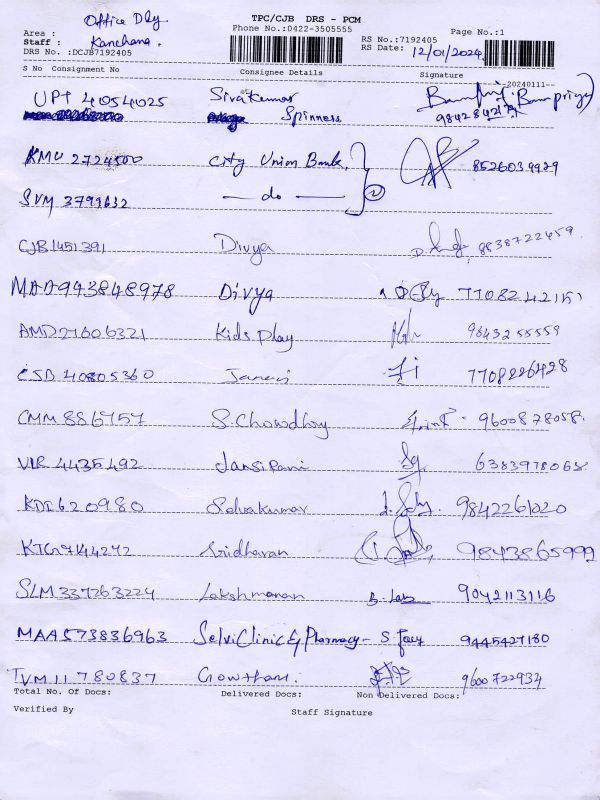 Office Dly
TPC/CJB DRS - PCM
Area :
Phone No.:0422-3505555
Page No.:1
Staff : Kanchana.
RS No.:7192405
DRS No. :DCJB7192405
RS Date: 12/01/2024
S No Consignment No Consignee Details Signature
20240111
UPT 4054025 Sivakumar
Spinners
KMU 2724500 City Union Bank, 8526039929
SVM 3799632 — do —
CJB1451391 Divya 8838722459.
MAA943848978 Divya 7708242151
AMD21606321 Kids play 9843255559
CSB 40805360 Janani 7708226428
CMM 886757 S. Chowdhry 9600878058.
VLR 4435492 Jansi Rani 6383978068
KDI620980 Selvakumar 9842261020
KTG7444272 Sridharan 9843865999
SLM337263224 Lakshmanan 9042113116
MAA573836963 Selvi Clinic & Pharmacy - 9445427180
TVM11780837 Gowtham. 9600722934
Total No. Of Docs: Delivered Docs: Non Delivered Docs:
Verified By Staff Signature